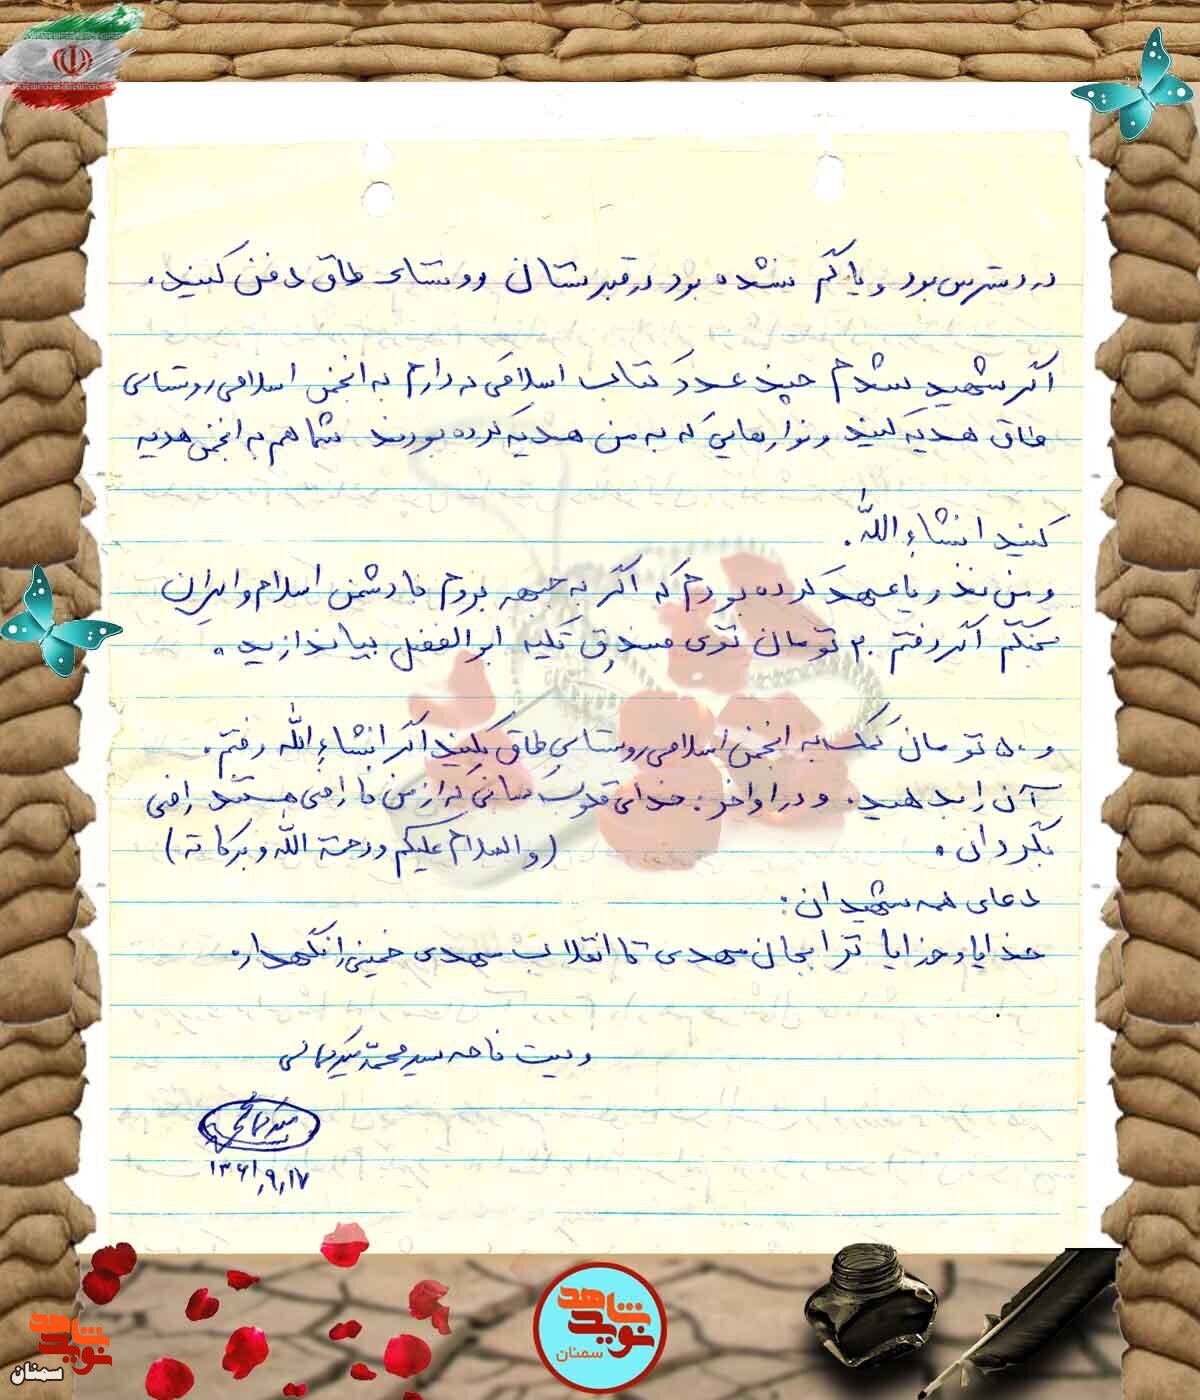 در دسترس بود و یا گم نشده بود در قبرستان روستای طاق دفن کنید.
اگر شهید شدم چند عدد کتاب اسلامی که دارم به انجمن اسلامی روستای
طاق هدیه کنید و نوارهایی که به من هدیه کرده بودند شما هم به انجمن هدیه
کنید انشاء الله.
و من نذر یا عهد کرده بودم که اگر به جبهه بروم با دشمن اسلام و ایران
بجنگم اگر رفتم ۲۰ تومان توی صندوق تکیه ابوالفضل بیاندازید.
و ۵۰ تومان کمک به انجمن اسلامی روستای طاق بکنید اگر انشاء الله رفتم.
آن را بدهید. و در اواخر: خدای کسانی که از من ناراضی هستند راضی
بگردان.
(والسلام علیکم و رحمة الله و برکاته)
دعای همه شهیدان:
خدایا خدایا ترا بجان مهدی تا انقلاب مهدی خمینی را نگهدار.
وصیت نامه سید محمد
۱۳۶۱،۹،۱۷
نوید شاهد
سمنان
نوید شاهد
سمنان